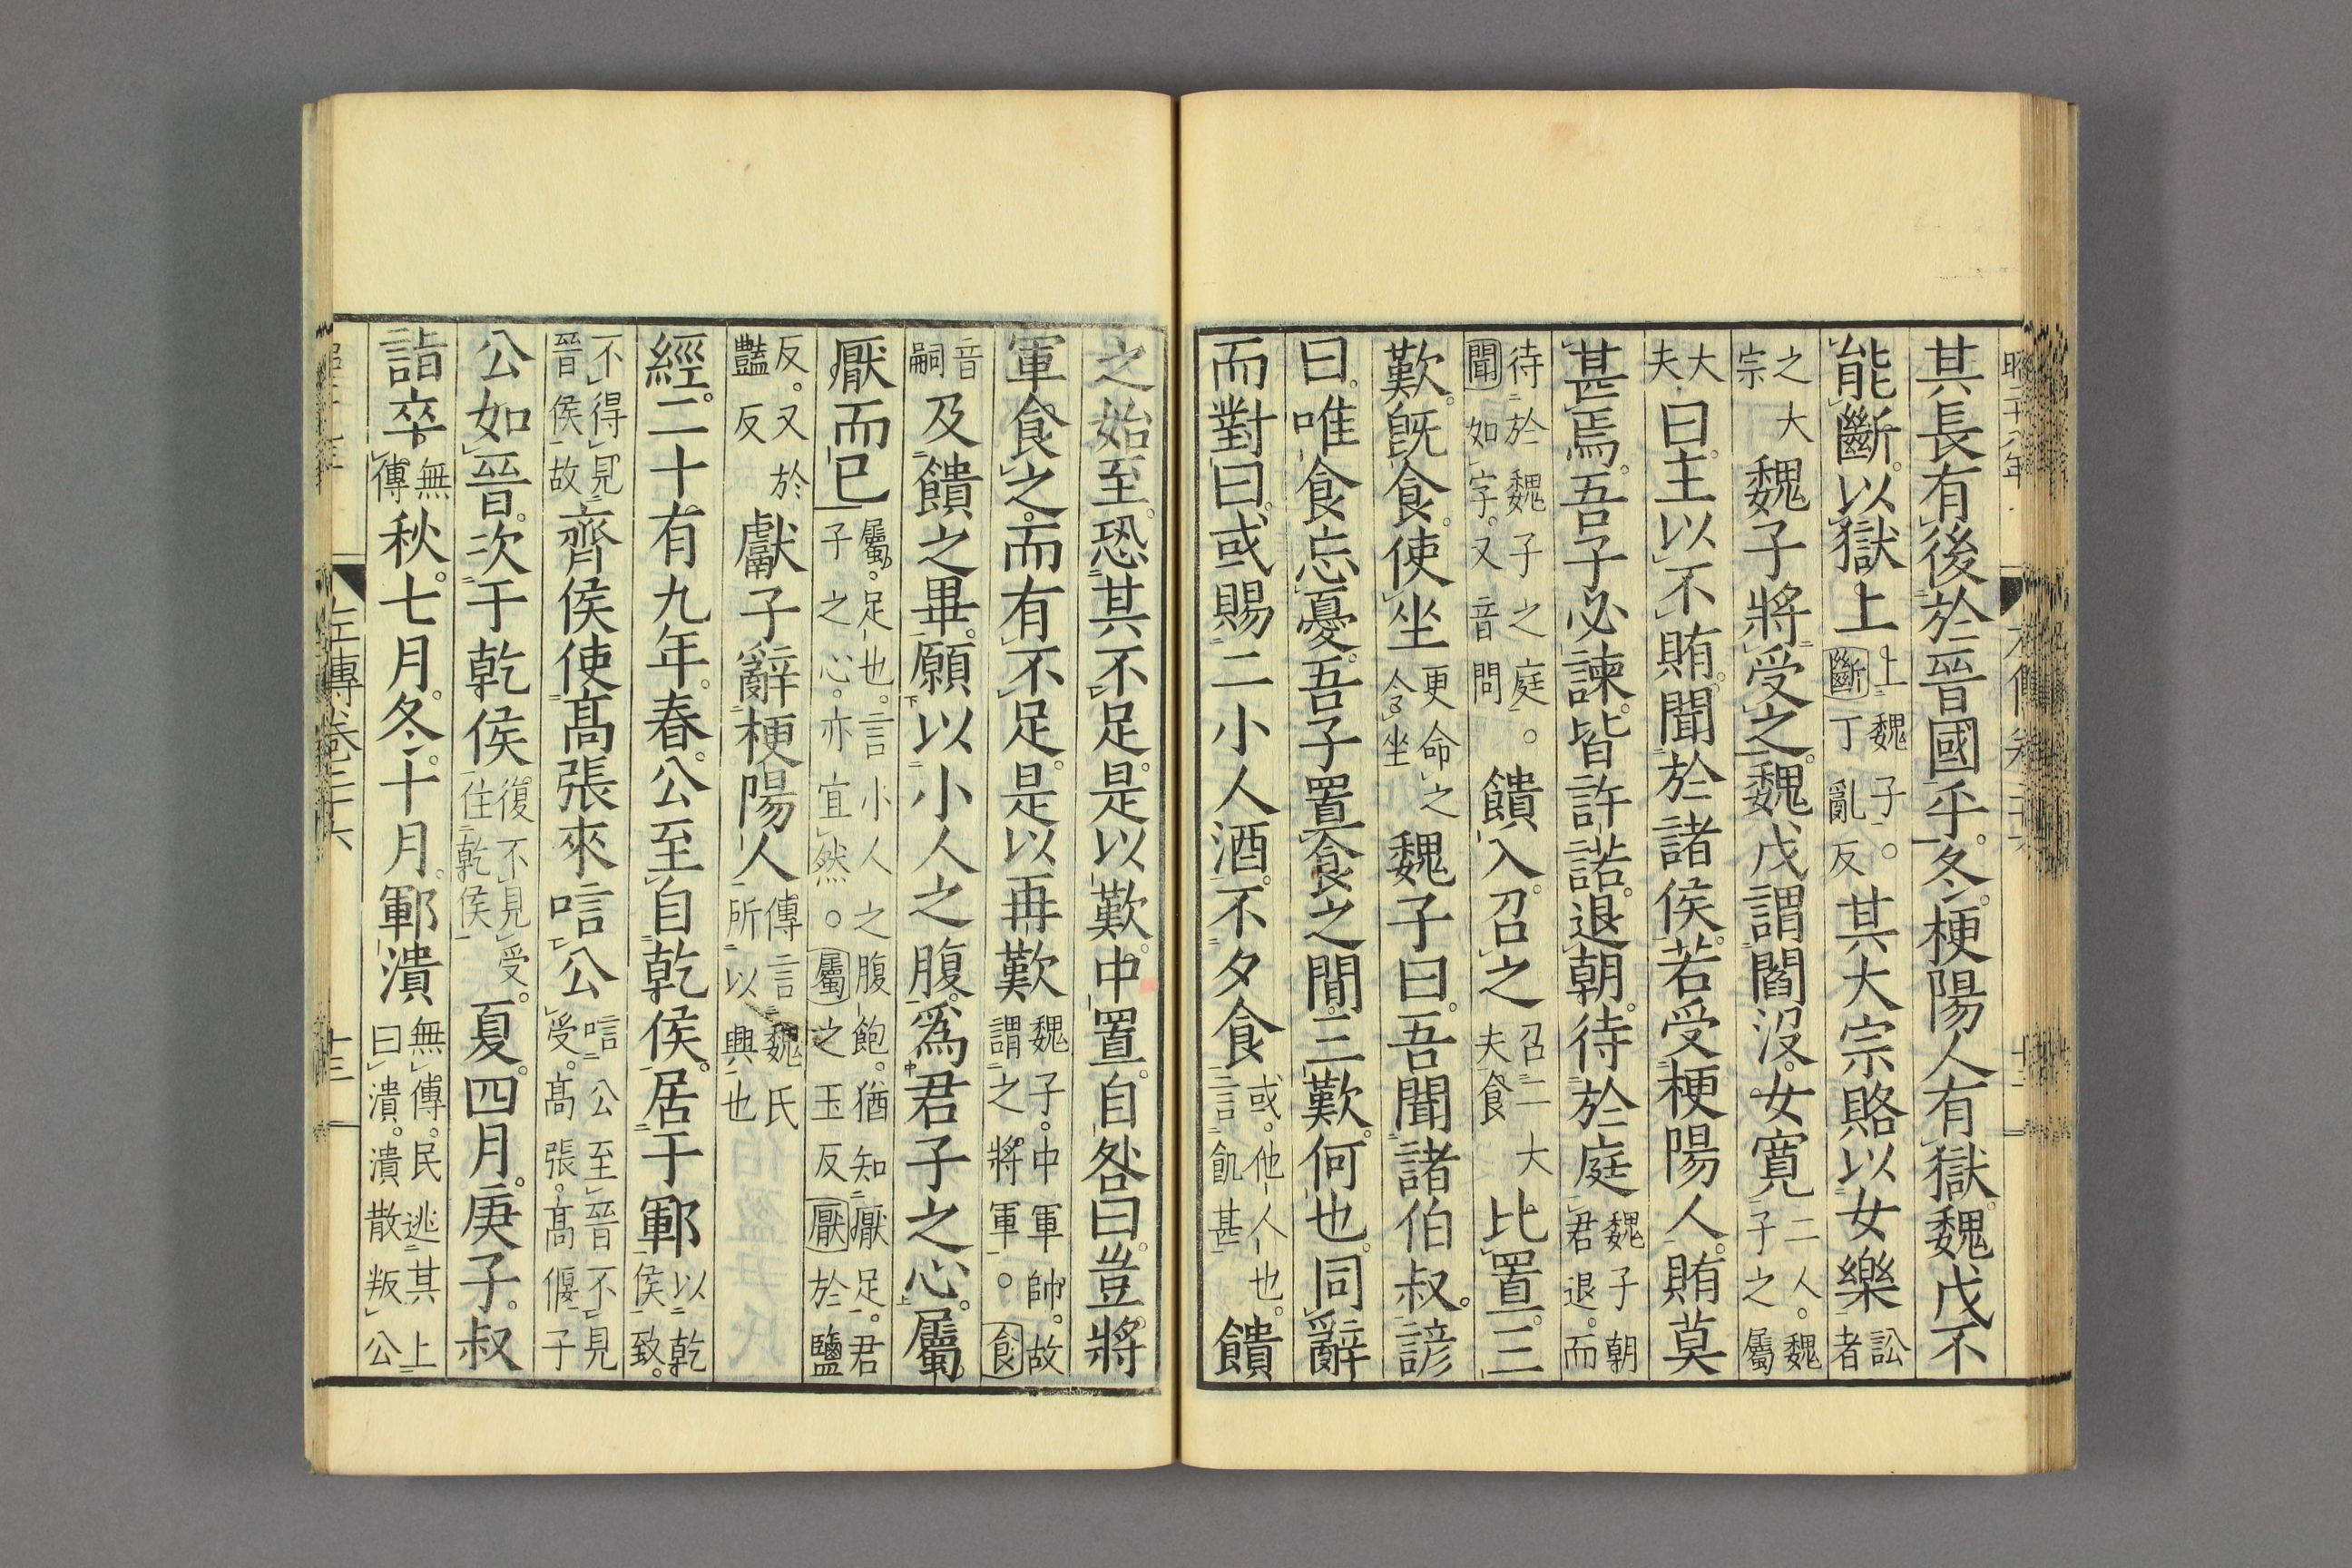 其長有後於晉國乎。冬。梗陽人有獄。魏戊不
能斷。以獄上。上魏子。斷丁亂反其大宗賂以女樂訟者
之大宗魏子將受之。魏戊謂閻沒女寬二人。魏子之屬
大夫曰。主以不賄。聞於諸侯。若受梗陽人。賄莫
甚焉。吾子必諫。皆許諾。退朝。待於庭魏子朝君退。而
待於魏子之庭。聞如字。又音問饋入。召之召二大夫食比置。三
歎。旣食。使坐更命之令坐魏子曰。吾聞諸伯叔。諺
曰。唯食忘憂。吾子置食之閒。三歎。何也。同辭
而對曰。或賜二小人酒。不夕食或。他人也。言飢甚饋
之始至。恐其不足。是以歎。中置。自咎曰。豈將
軍。食之。而有不足。是以再歎魏子。中軍帥。故謂之將軍。食
音嗣及饋之畢。願以小人之腹。爲君子之心。屬
厭而已屬。足也。言小人之腹飽。猶知厭足。君子之心。亦宜然。屬之玉反厭於鹽
反。又於豔反獻子辭梗陽人傳言魏氏所以興也
經。二十有九年。春。公至自乾侯。居于鄆以乾侯致。
不得見晉侯故齊侯使高張來唁公唁公至晉不見受。高張。高偃子
公如晉。次于乾侯復不見受。住乾侯夏。四月。庚子。叔
詣卒。無傳秋。七月。冬。十月。鄆潰無傳。民逃其上曰潰。潰散叛公
左傳卷二十六
十三